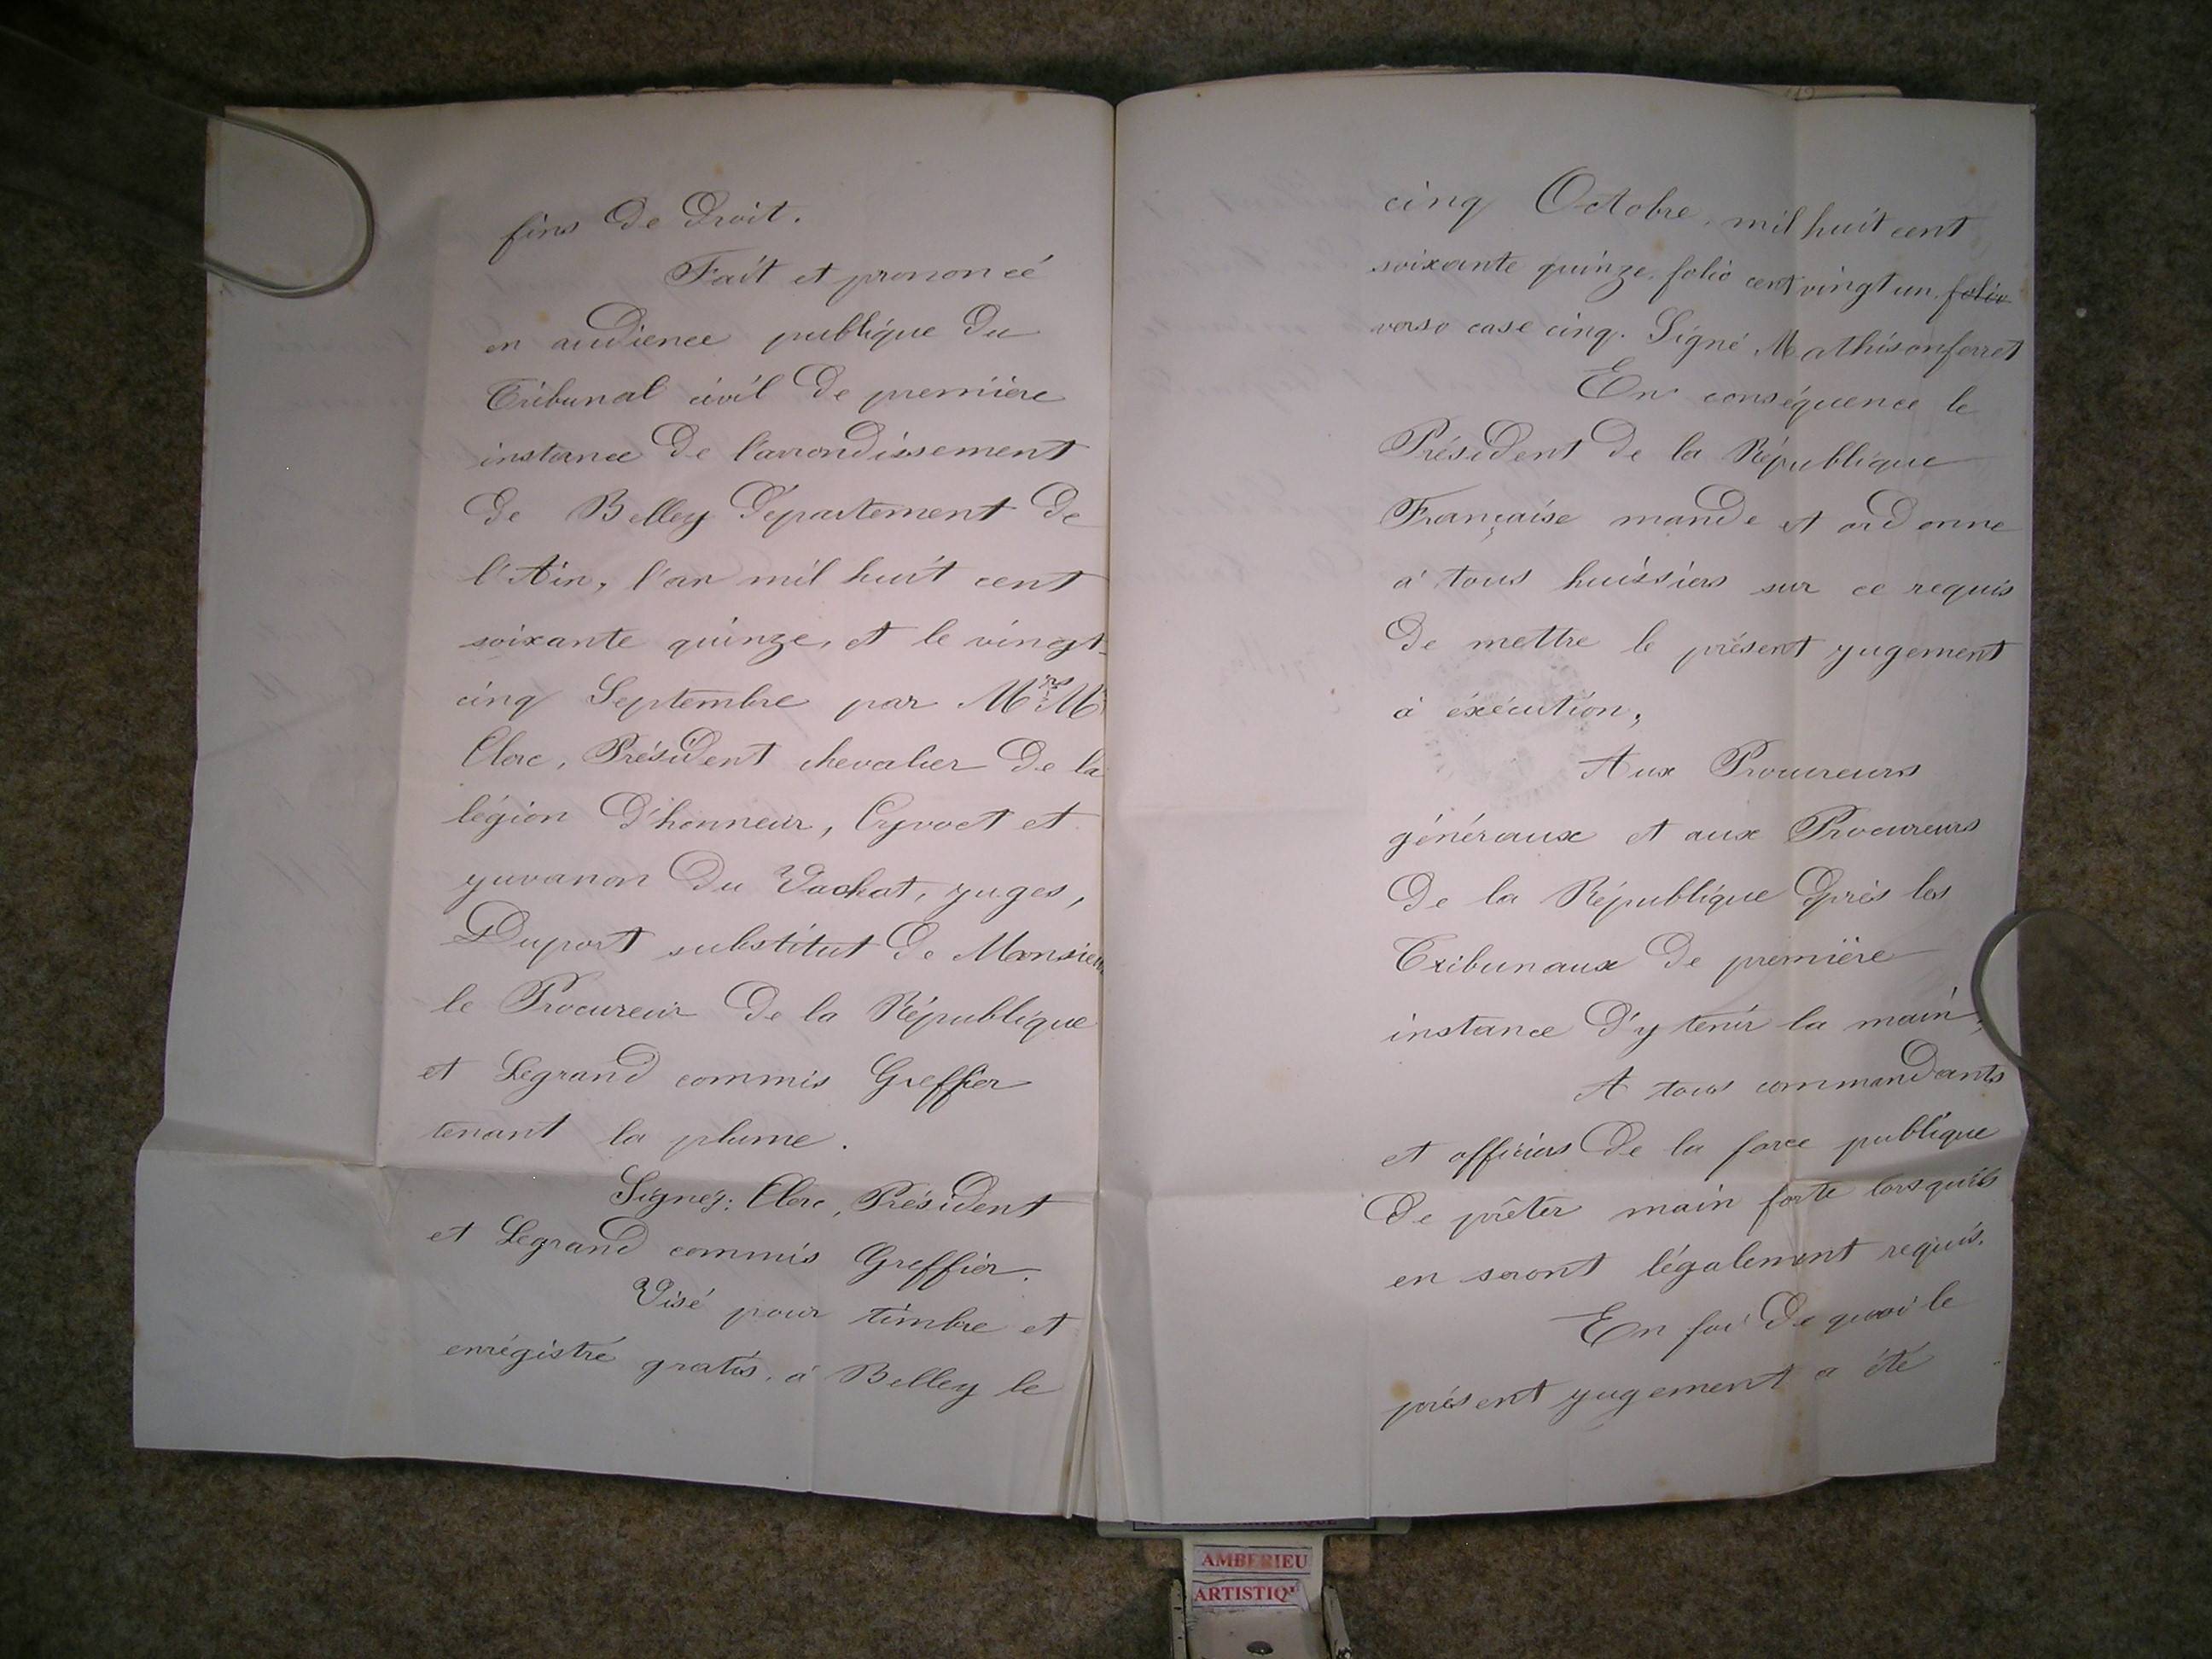 fins de droit.
Fait et prononcé
en audience publique du
Tribunal civil de première
instance de l'arrondissement
de Belley département de
l'Ain, l'an mil huit cent
soixante quinze, et le vingt-
cinq Septembre par Mrs M
Clerc, Président chevalier de la
légion d'honneur, Cyvoct et
juvanon du Vachat, juges,
Duport substitut de Monsieur
le Procureur de la République
et Legrand commis Greffier
tenant la plume.
Signéz: Clerc, Président
et Legrand commis Greffier.
Visé pour timbre et
enrégistré gratis, à Belley le
cinq Octobre, mil huit cent
soixante quinze, folio cent vingt un, folio
verso case cinq. Signé Mathisonferret
En conséquence le
Président de la République
Française mande et ordonne
à tous huissiers sur ce requis
de mettre le présent jugement
à éxécution,
Aux Procureurs
généraux et aux Procureurs
de la République près les
Tribunaux de première
instance d'y tenir la main,
A tous commandants
et officiers de la force publique
de prêter main forte lorsqu'ils
en seront légalement requis.
En foi de quoi le
présent jugement a été
AMBERIEU
ARTISTIQ